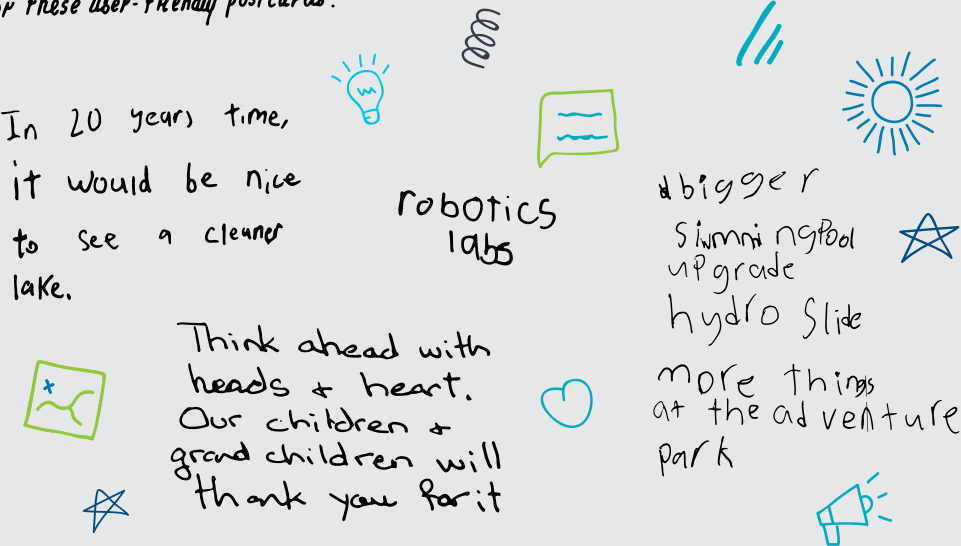 for these user-friendly postcards.
In 20 years time,
it would be nice
to see a cleaner
lake.
robotics
labs
bigger
SiwmningPool
upgrade
hydro Slide
more things
at the adventure
park
Think ahead with
heads & heart.
Our children &
grand children will
thank you for it